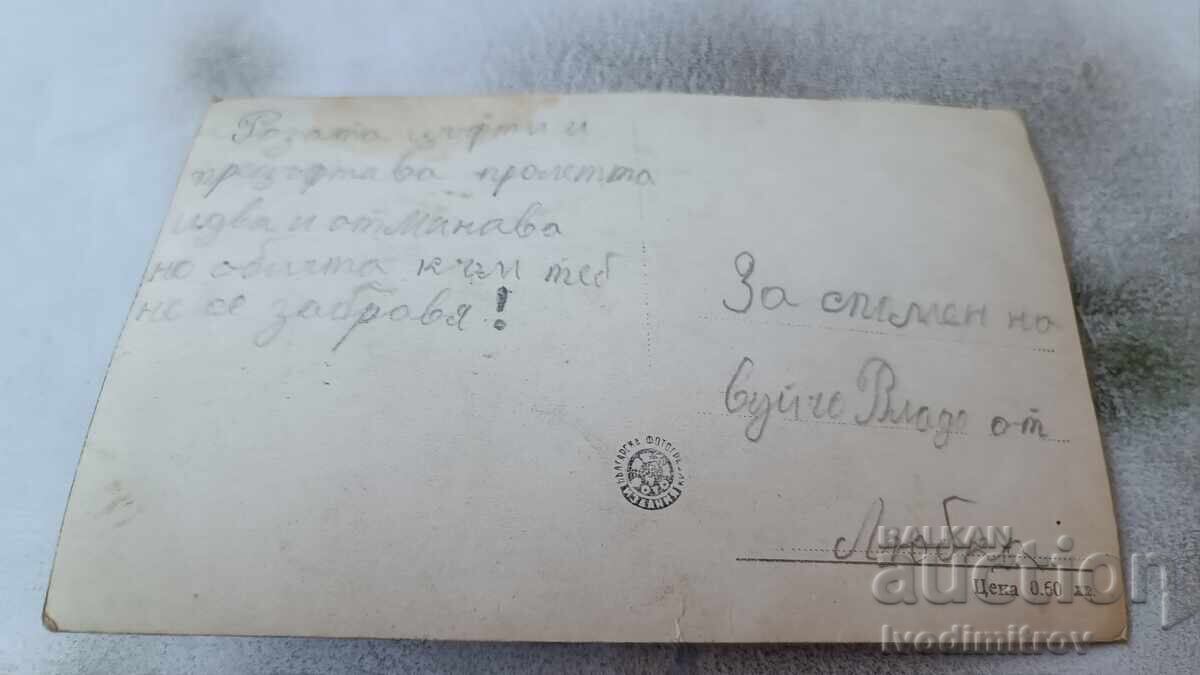 Розата цъфти и
прецъфтава пролетта
идва и отминава
но обичта към теб
не се забравя!
За спомен на
вуйчо Владо от
БЪЛГАРСКИ ФОТОГРАФ
ИЗДАНИЯ
Цена 0.60 лв.
BALKAN
auction
Ivodimitrov